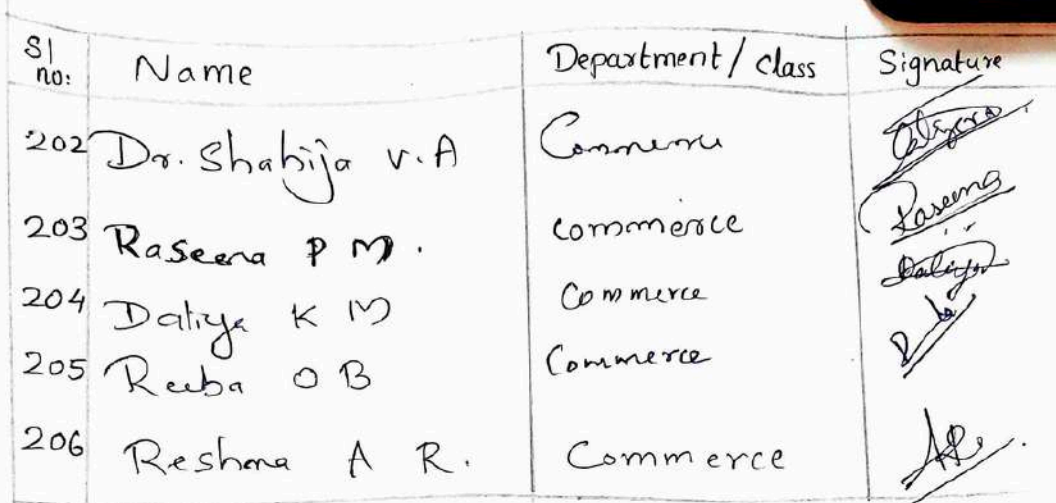 Sl no: Name Department / Class Signature
202 Dr. Shabija V.A Commerce
203 Raseena P M. commerce Raseena
204 Daliya K M Commerce Daliya
205 Reeba O B Commerce
206 Reshma A R. Commerce